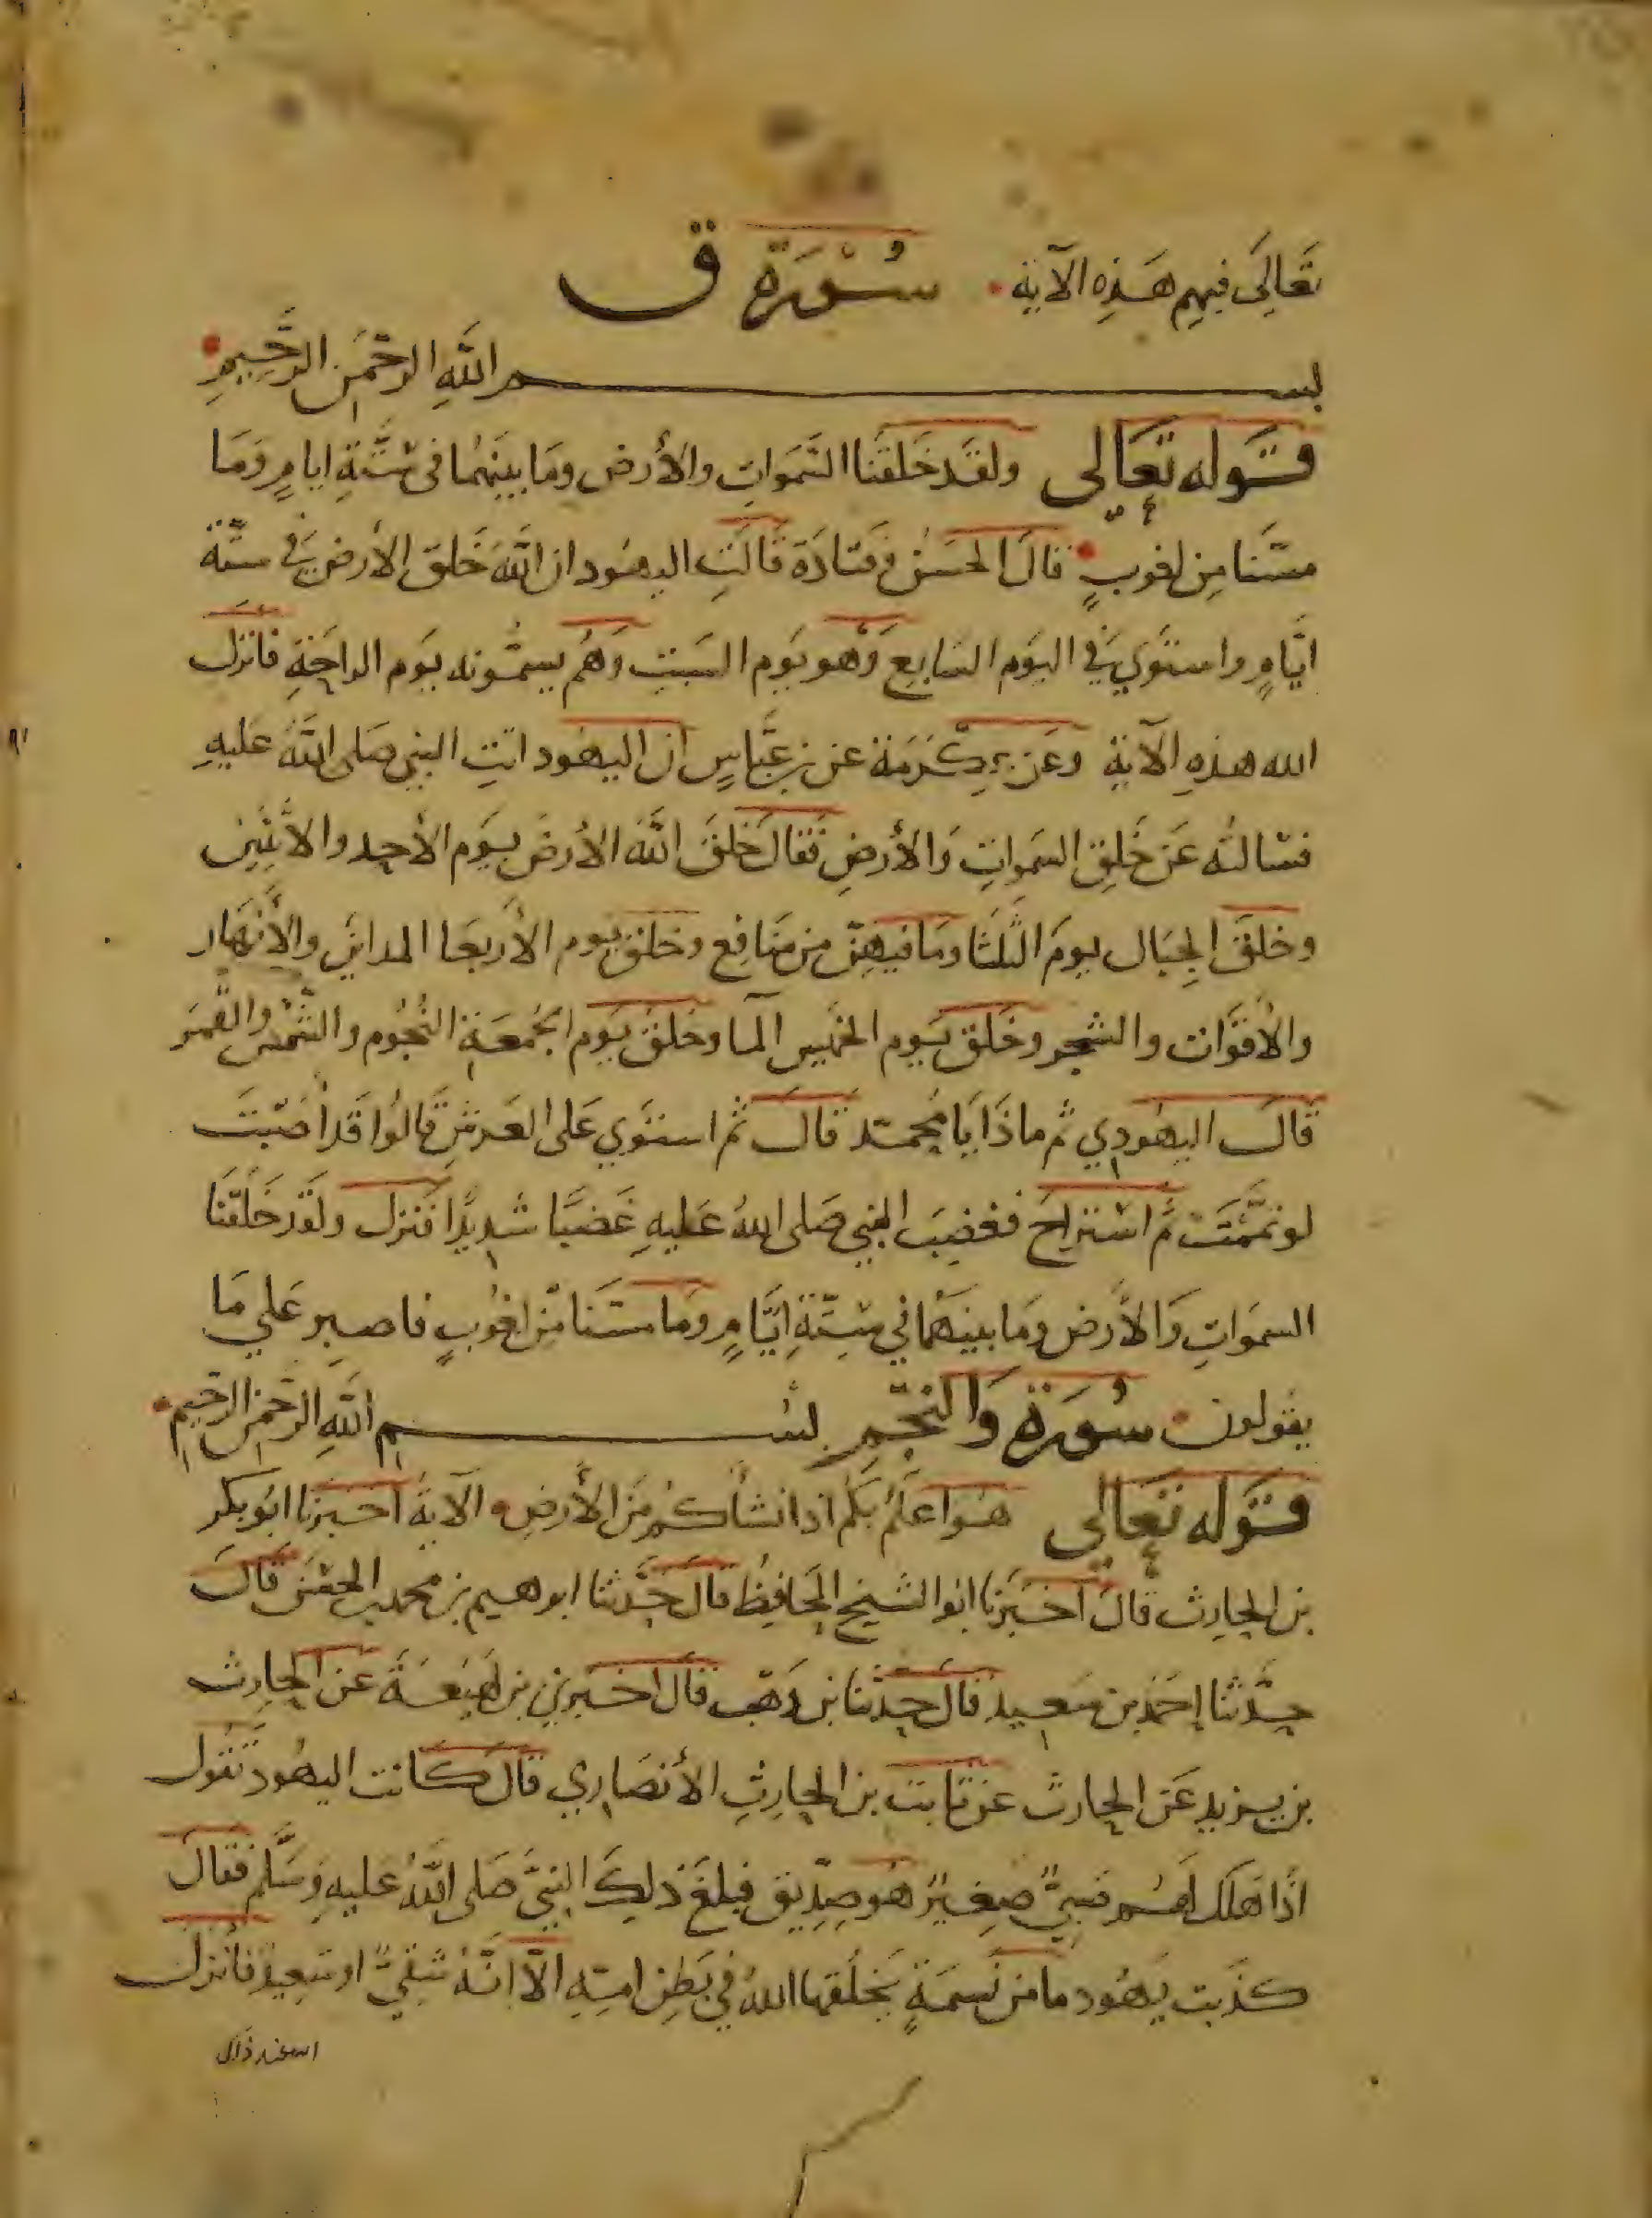 تَعَالَى فيهِم هَذِهِ الآية . سُوْرَة ق
بســــــم اللَّهِ الرحْمَنِ الرَّحِيمِ
قوله تعَالى ولقَد خَلَقنَا السَّمَواتِ والأرض ومَا بينَهمَا فى سِتَّةِ ايامٍ وَمَا
مسّنَا مِن لغوبٍ قالَ الحسَنُ وقتادَة قالَتِ اليهُود ان اللَّهَ خَلق الأرض في ستّة
ايَّامٍ واستَوي في اليَوم السَابِع وَهو يَوم السَبتِ وَهُم يسمُّونه يَوم الراحَةِ فانزل
الله هذِهِ الآية وعَن عِكْرَمَة عَن بن عبَّاسٍ ان اليهُود اتتِ النبي صَلى اللَّهُ عَليهِ
فسَالتهُ عَن خَلقِ السَمواتِ وَالأرضِ فَقالَ خَلقَ اللَّهُ الأرضَ يوَم الأحد والاثنين
وخلقَ الجِبَال يومَ الثَّلثَا ومَا فيهِنّ من منَافِع وخلق يَوم الأربعَا المداين والأنهَار
والأقوَات والشجر وخَلق يَوم الخَمِيس السمآ وخلقَ يَوم الجُمعَة النُّجُوم والشَّمْس والقَمَر
قالَ اليهُودي ثم ماذَا يَا مُحمَّد قال ثم استَوي عَلى العَرشِ قَالوُا قَد أصَبتَ
لو تمَّمْتَ ثُم استراحَ فغضِبَ النبي صَلى اللهُ عَليهِ غَضبًا شديدًا فَنزل ولَقَد خَلقْنَا
السموَاتِ وَالأرض ومَا بينهَمَا في سِتّةِ ايَّامٍ وَمَا مسّنَا مِن لغُوبٍ فاصبر عَلي مَا
يقولون . سُورَة وَالنجْمِ بســــــم اللَّهِ الرحْمَنِ الرَحِيمِ
قوله تعَالى هُوَ اعلَمُ بكُم اذ انشأكُم مِنَ الأرضِ الآية اخبرنَا ابُو بكر
بن الحارِث قالَ اخبَرنَا ابوُ الشيخِ الحَافِظُ قالَ حَدَّثنا ابرهيم بن محمد بن الحسَن قالَ
حدَّثنا احمَد بن سعيد قالَ حدّثنا بن وَهَب قال اخبرني بن لَهيعَة عَن الحارِث
بن يزيد عَن الحارث عَن ثابت بن الحارِثِ الأنصَاري قالَ كَانت اليهُود تقُول
اذا هَلك لهُم صَبيّ صغِير هُو صِدِّيق فبلغَ ذلِكَ النبيَّ صَلى اللَّهُ عَليهِ وَسَلَّم فقالَ
كذَبت يَهُود مَا من نَسمَةٍ يَخلقهَا اللهُ في بَطِن امّهِ الّا انّهُ شقيٌّ او سَعِيدٌ فأنزل
الله عند ذلك